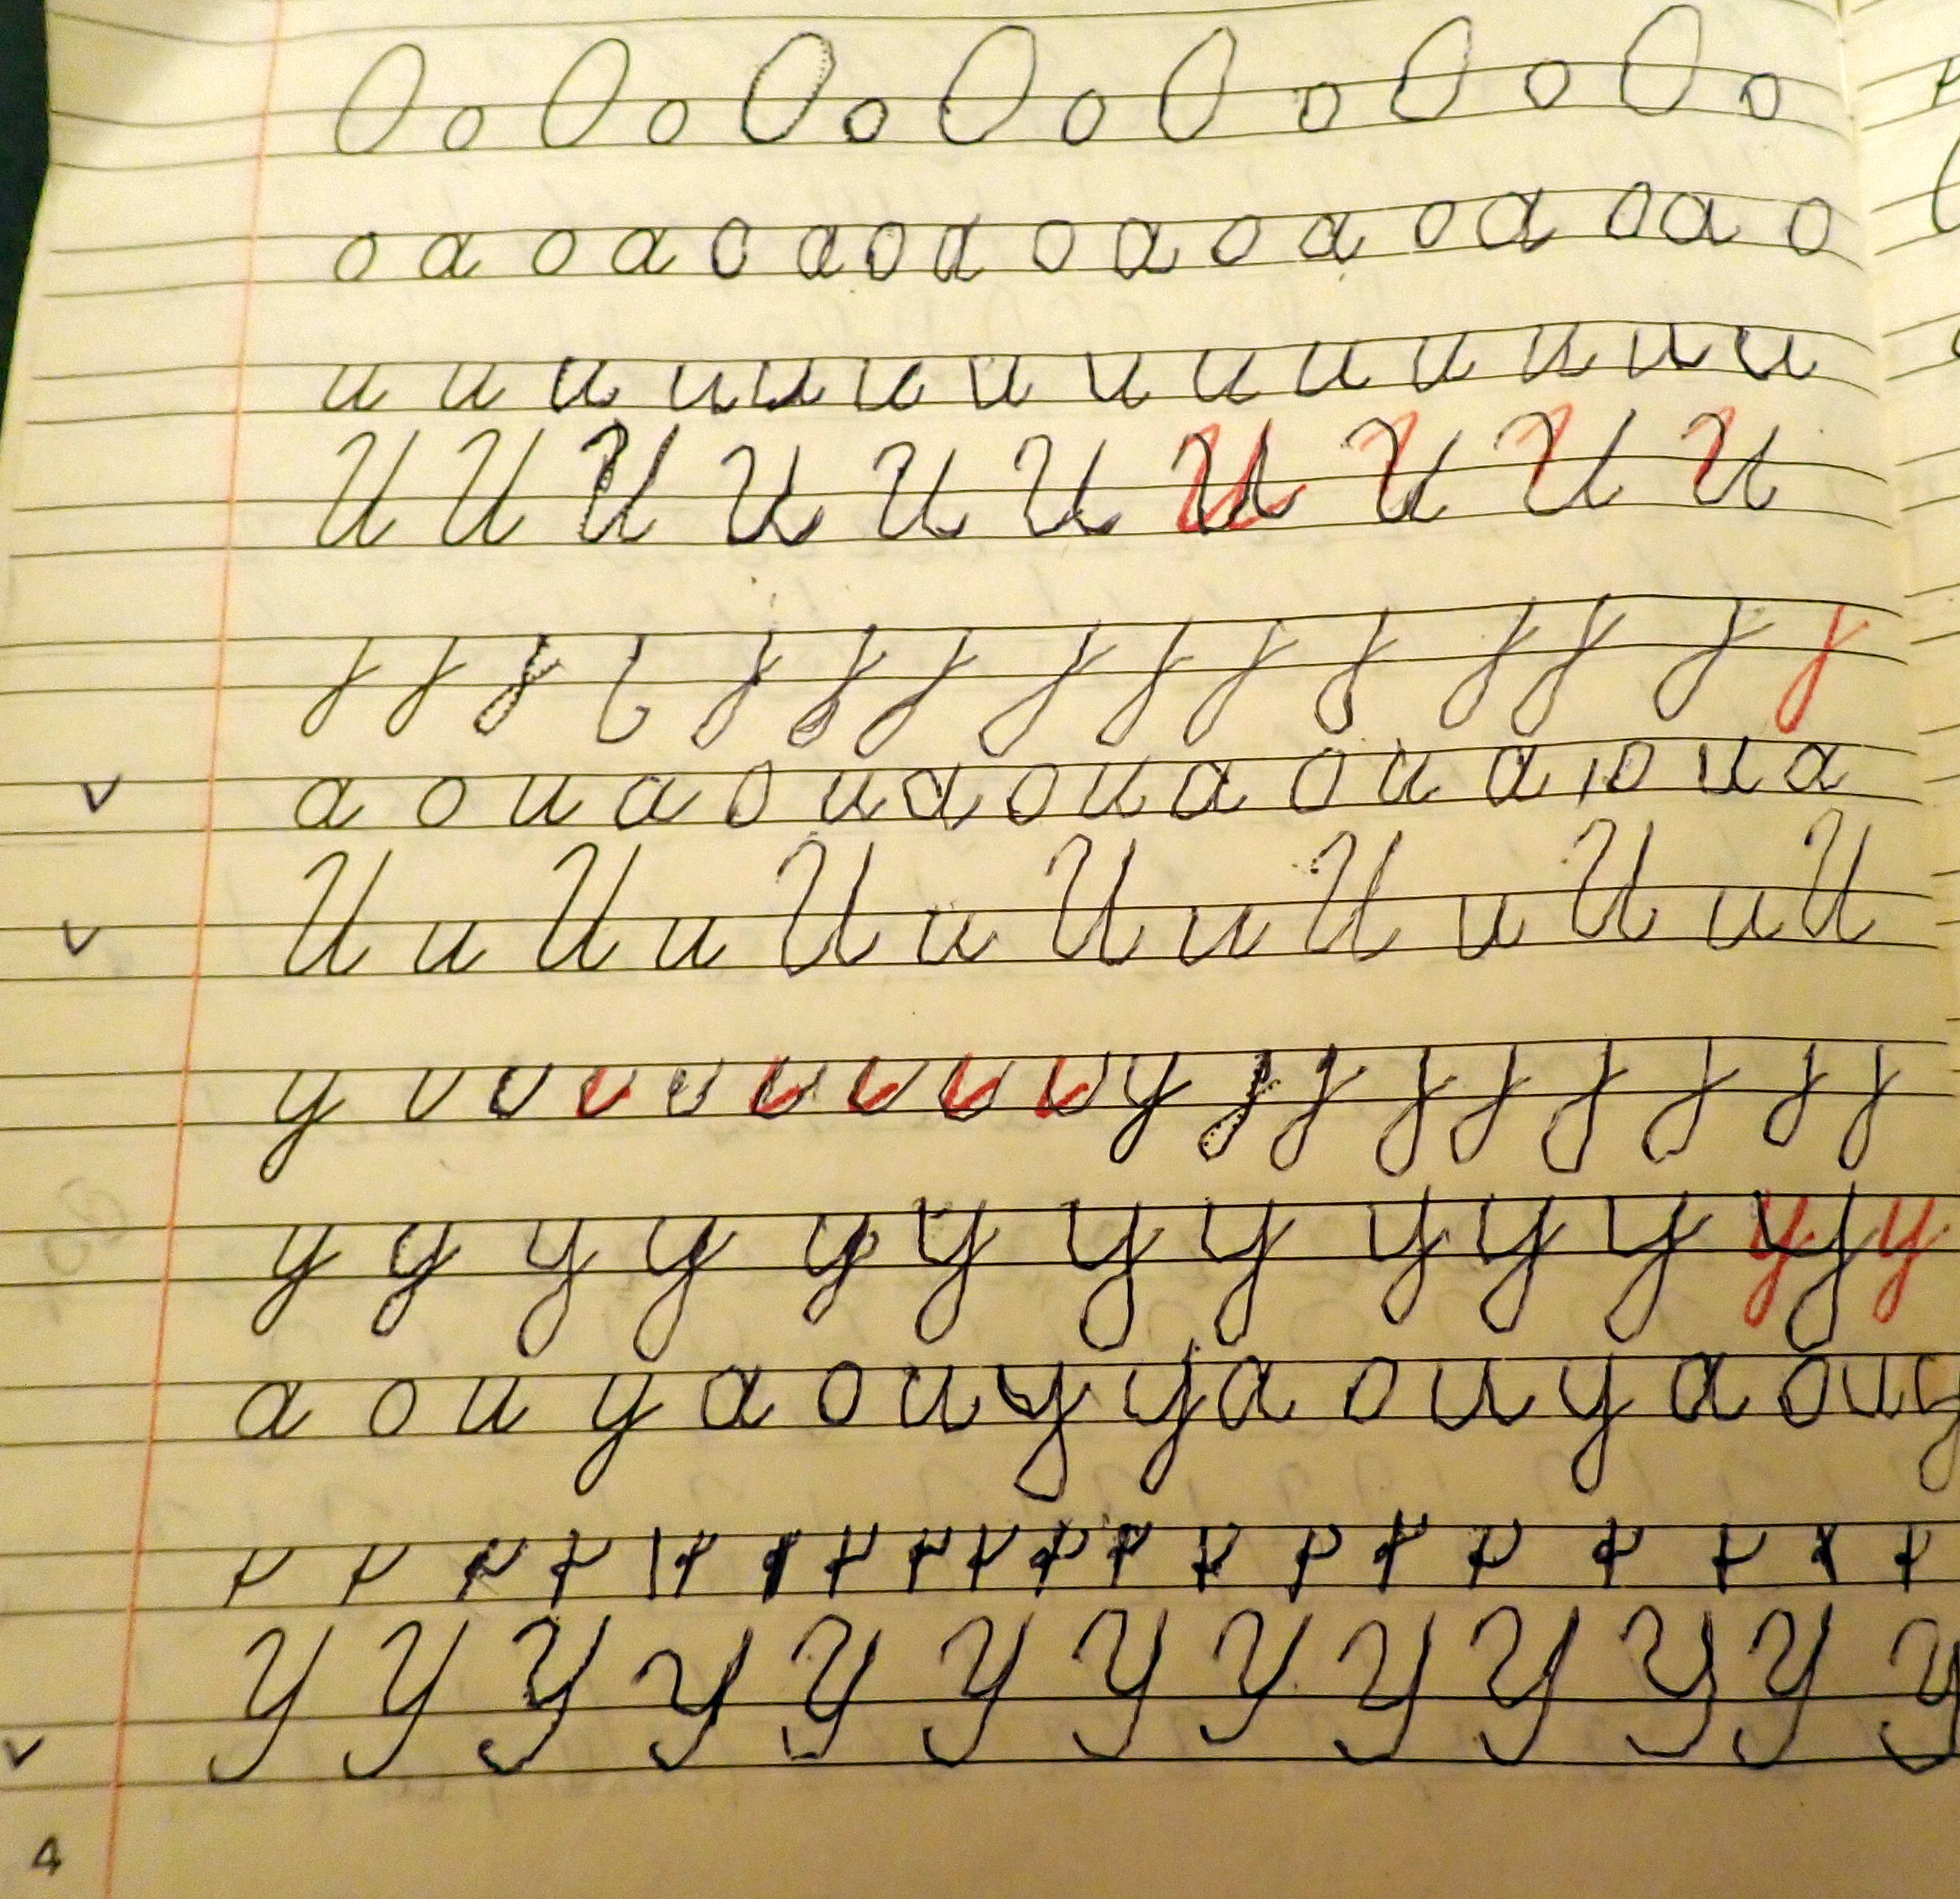 О о О о О о О о О о О о О о
о а о а о а о а о а о а о а о а о
и и и и и и и и и и и и и и
И И И И И И И И И И
а о и а о и а о и а о и а о и а
И и И и И и И и И и И и И
у у
у у у у у у у у у у у у у у
а о и у а о и у у а о и у а о и у
У У У У У У У У У У У У У
4